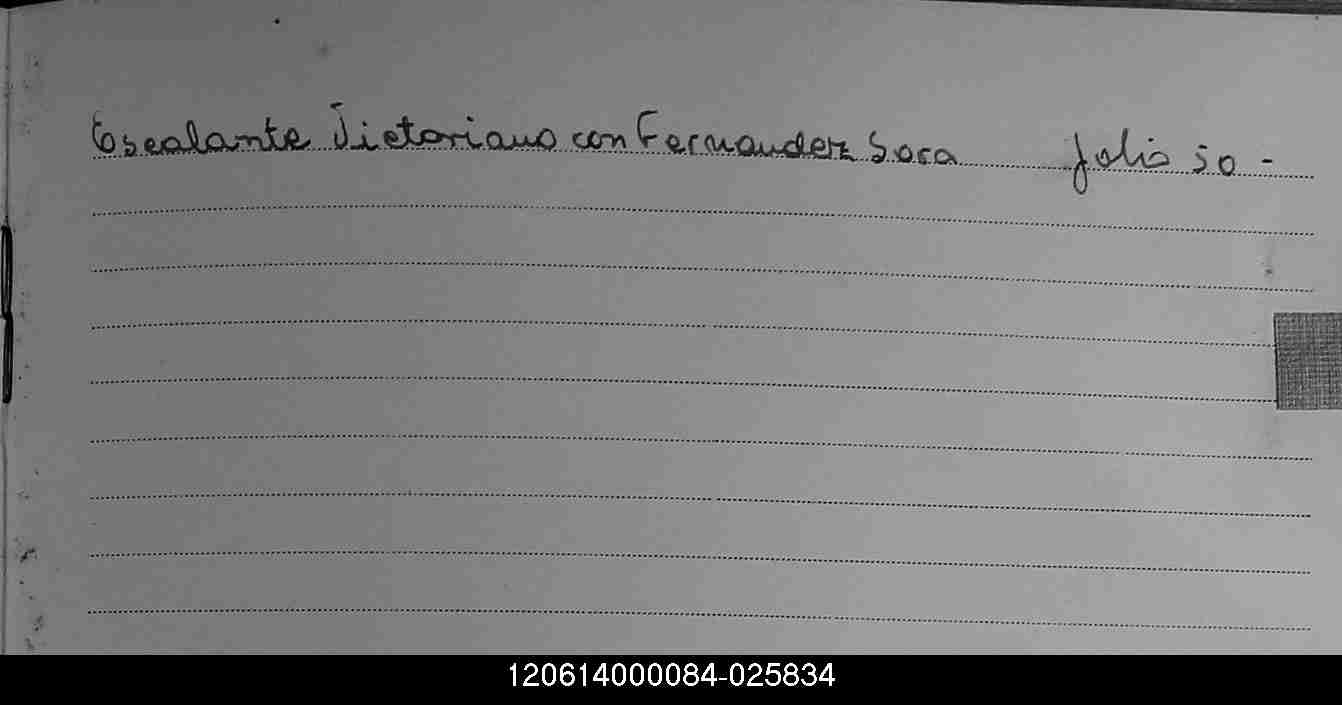 Escalante Victoriano con Fernandez Sara folio 50 -
120614000084-025834